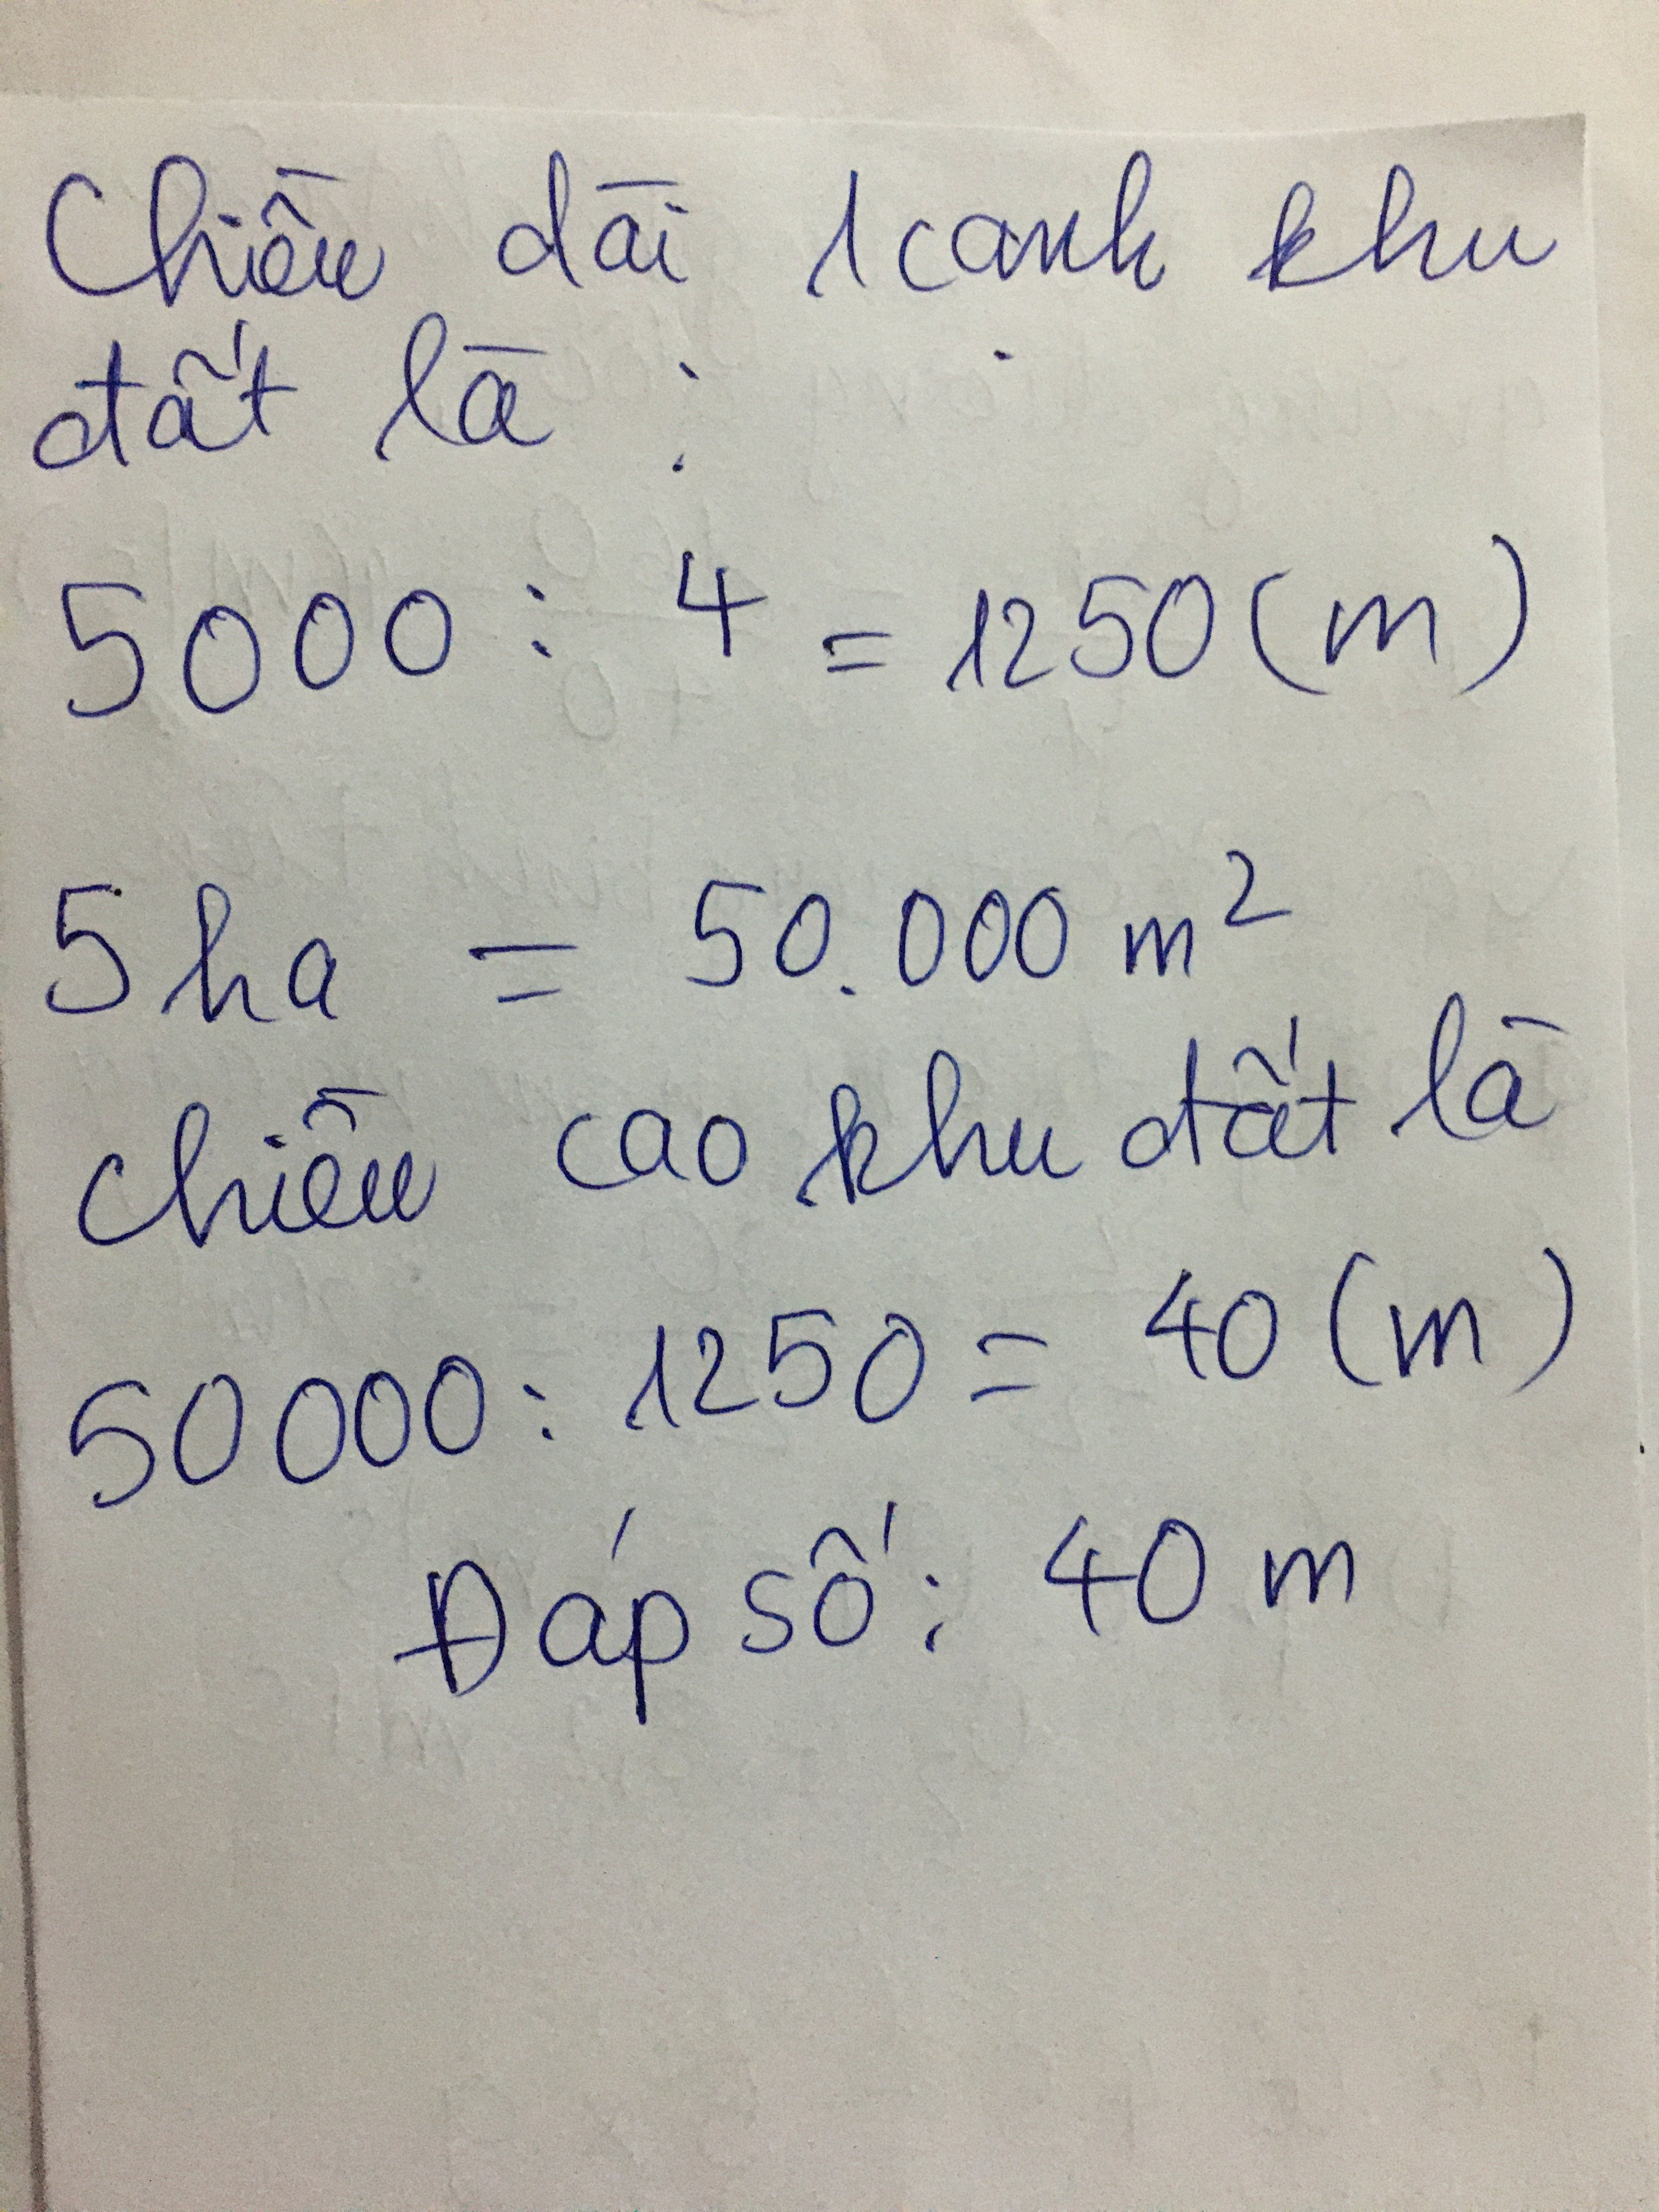 Chiều dài 1 cạnh khu
đất là :
5000 : 4 = 1250 (m)
5 ha = 50.000 m²
Chiều cao khu đất là
50000 : 1250 = 40 (m)
Đáp số : 40 m